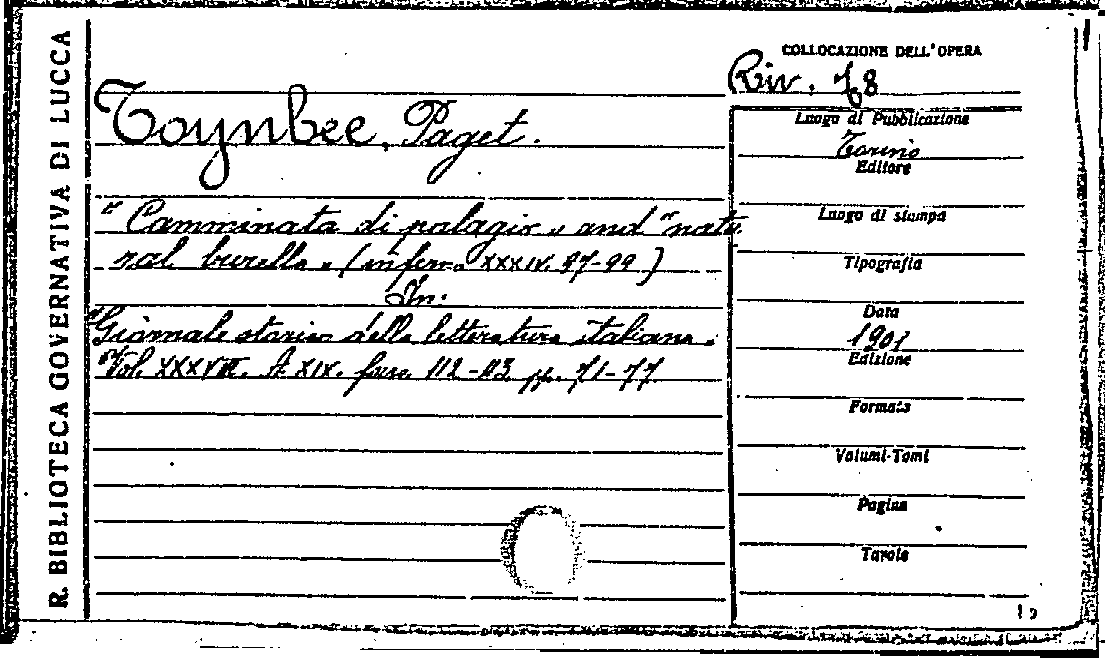 R. BIBLIOTECA GOVERNATIVA DI LUCCA
COLLOCAZIONE DELL'OPERA
Riv. 78
Toynbee, Paget.
"Camminata di palagio" and "natu
ral burella" (inferno XXXIV. 97-99)
In:
"Giornale storico della letteratura italiana.
Vol. XXXVII. A. XIX. fasc. 112-113 pp. 71-77
Luogo di Pubblicazione
Torino
Editore
Luogo di stampa
Tipografia
Data
1901
Edizione
Formato
Volumi-Tomi
Pagine
Tavole